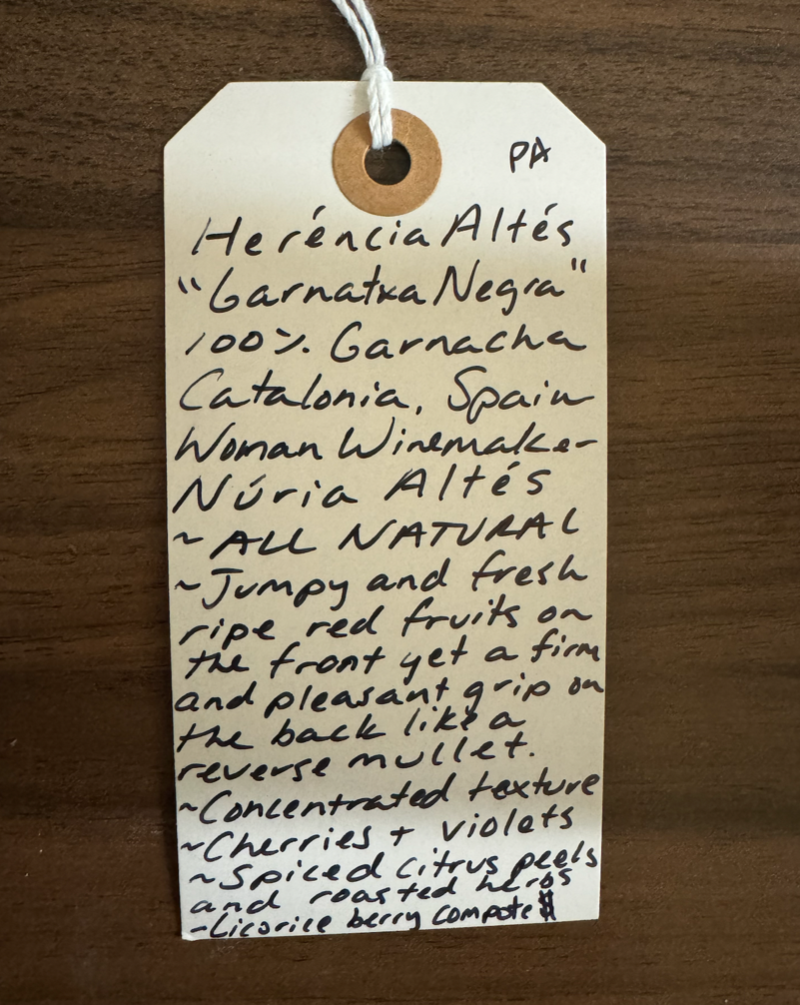 PA
Heréncia Altés
"Garnatxa Negra"
100% Garnacha
Catalonia, Spain
Woman Winemaker
Núria Altés
~ ALL NATURAL
~Jumpy and fresh
ripe red fruits on
the front yet a firm
and pleasant grip on
the back like a
reverse mullet.
~Concentrated texture
~Cherries + violets
~Spiced citrus peels
and roasted herbs
~Licorice berry compote